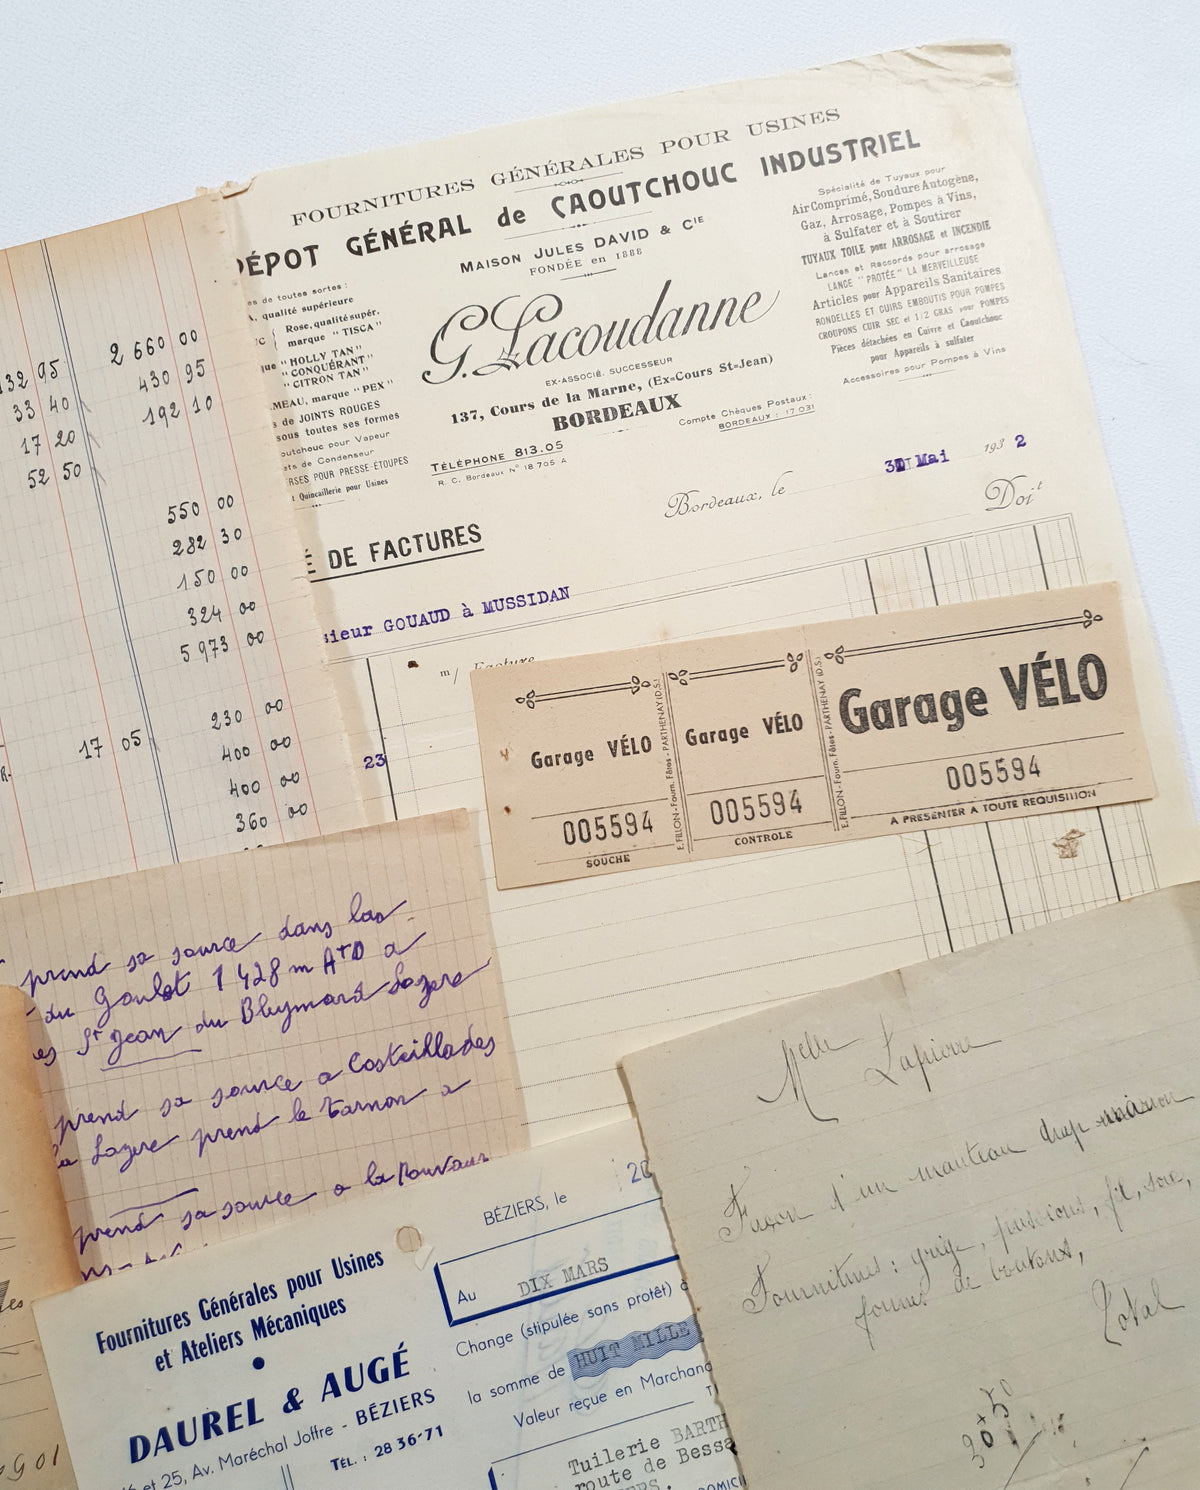 FOURNITURES GÉNÉRALES POUR USINES
DÉPOT GÉNÉRAL de CAOUTCHOUC INDUSTRIEL
MAISON JULES DAVID & CIE
FONDÉE en 1888
G. Lacoudanne
EX-ASSOCIÉ. SUCCESSEUR
137, Cours de la Marne, (Ex=Cours St=Jean)
BORDEAUX
TÉLÉPHONE 813.05
R. C. Bordeaux N° 18 705 A
Compte Chèques Postaux:
BORDEAUX: 17 031
es de toutes sortes:
A, qualité supérieure
Rose, qualité supér.
marque "TISCA"
que "HOLLY TAN"
"CONQUÉRANT"
"CITRON TAN"
MEAU, marque "PEX"
s de JOINTS ROUGES
sous toutes ses formes
outchouc pour Vapeur
ets de Condenseur
RSES POUR PRESSE-ÉTOUPES
t Quincaillerie pour Usines
Spécialité de Tuyaux pour
Air Comprimé, Soudure Autogène,
Gaz, Arrosage, Pompes à Vins,
à Sulfater et à Soutirer
TUYAUX TOILE pour ARROSAGE et INCENDIE
Lances et Raccords pour arrosage
LANCE "PROTÉE" LA MERVEILLEUSE
Articles pour Appareils Sanitaires
RONDELLES ET CUIRS EMBOUTIS POUR POMPES
CROUPONS CUIR SEC et 1/2 GRAS pour POMPES
Pièces détachées en Cuivre et Caoutchouc
pour Appareils à sulfater
Accessoires pour Pompes à Vins
Bordeaux, le Mai 193 2
Doit
É DE FACTURES
sieur GOUAUD à MUSSIDAN
m/ Facture
23
132 95 2 660 00
33 40 430 95
17 20 192 10
52 50
550 00
282 30
150 00
324 00
5 973 00
230 00
17 05 400 00
R. 400 00
360 00
Garage VÉLO
005594
SOUCHE
E. FILLON - Fourn. Fêtes - PARTHENAY (D.S.)
Garage VÉLO
005594
CONTROLE
E. FILLON - Fourn. Fêtes - PARTHENAY (D.S.)
Garage VÉLO
005594
A PRÉSENTER A TOUTE REQUISITION
prend sa source dans las
du Goulet 1 428 m Atd a
es St Jean du Bleymard Lozere
prend sa source a Costeillades
la Lozere prend le tarnon a
prend sa source a la
Fournitures Générales pour Usines
et Ateliers Mécaniques
DAUREL & AUGÉ
et 25, Av. Maréchal Joffre - BÉZIERS
TÉL.: 28 36-71
BÉZIERS, le 20
Au DIX MARS
Change (stipulée sans protêt) à
la somme de HUIT MILLE
Valeur reçue en Marchand
Tuilerie BARTH
route de Bessa
ERS.
DOMICI
Melle Lapierre
Façon d'un manteau drap marron
Fournitures: grège, passions, fil, soie,
forme de boutons,
Total